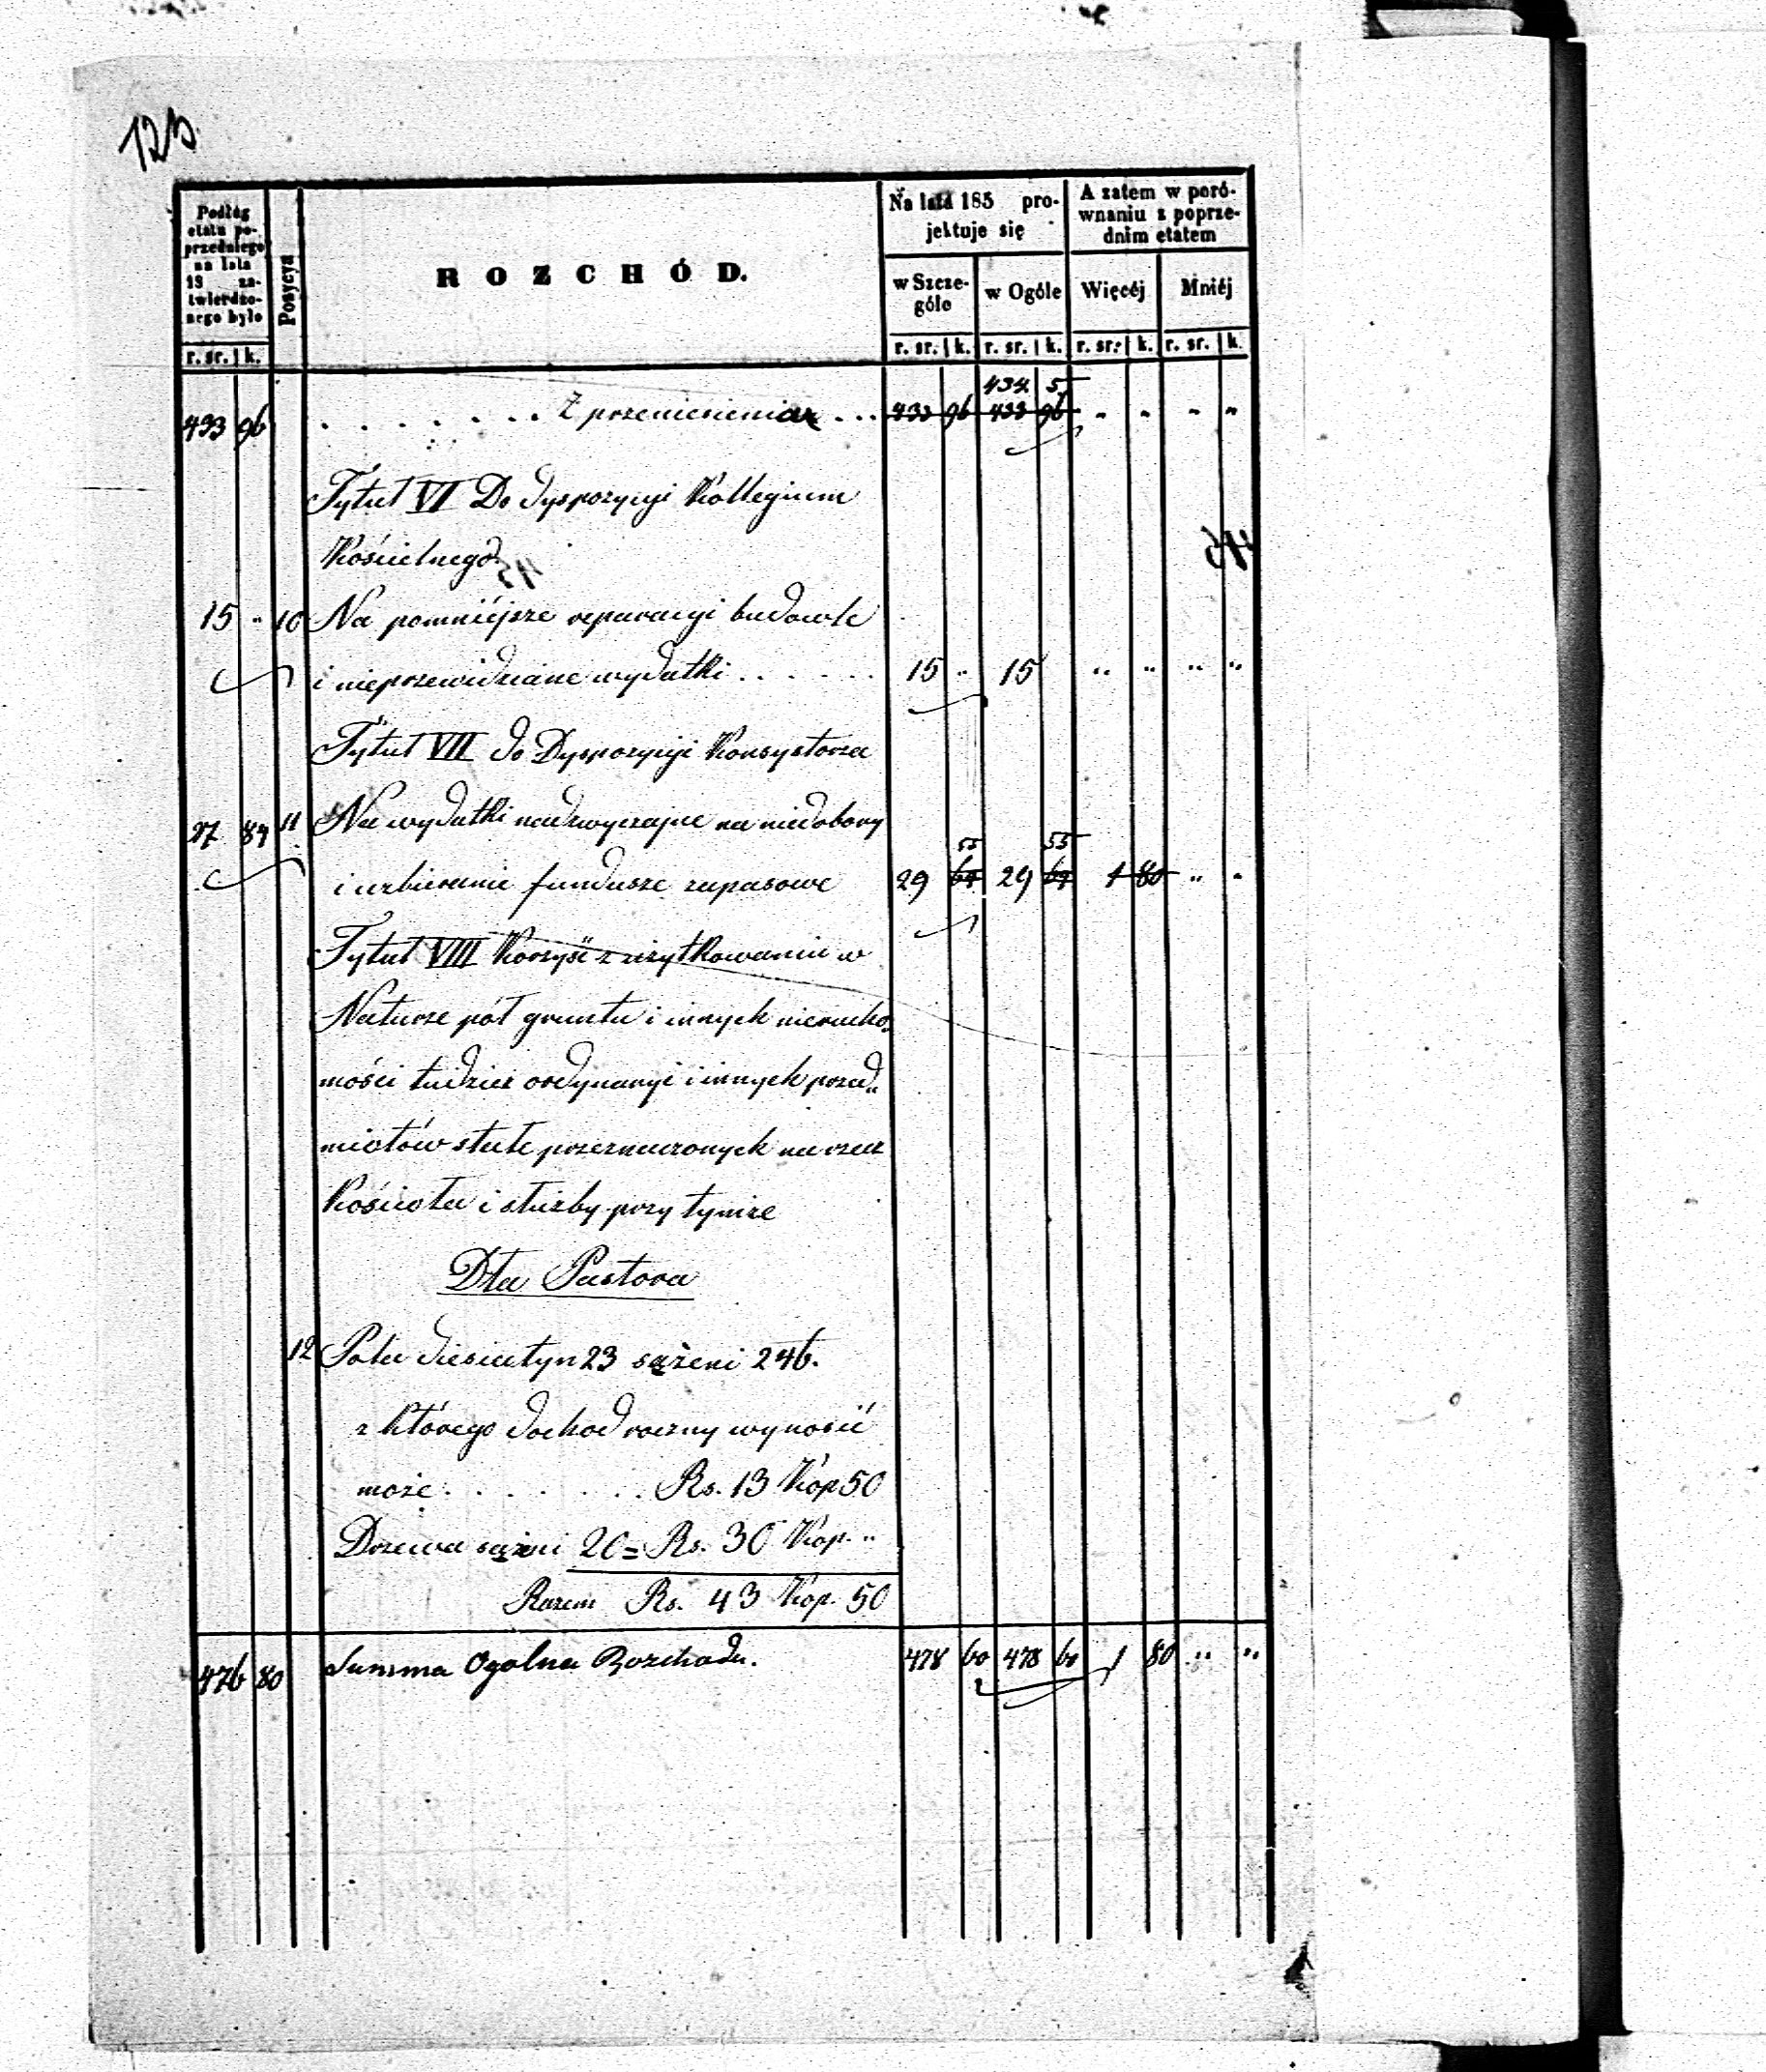 125
Podług etatu poprzedniego na lata 18 zatwierdzonego było
Posycya
ROZCHÓD.
Na lata 185 projektuje się
A zatem w porównaniu z poprzednim etatem
w Szczególe
w Ogóle
Więcéj
Mniéj
r. sr. k. r. sr. k. r. sr. k. r. sr. k. r. sr. k.
434 5
433 96 Z przeniesienia 433 96 433 96 " " " "
Tytuł VI Do dyspozycyi Kollegium
Kościelnego
15 " 10 Na pomniéjsze reparacyi budowle
i nieprzewidziane wydatki 15 " 15 " " " "
Tytuł VII do Dyspozycyi Konsystorza
27 84 11 Na wydatki nadzwyczajne na niedobory
55 55
i uzbieranie fundusze zapasowe 29 64 29 64 1 80 " "
Tytuł VIII Korzyść z użytkowania w
Naturze pół gruntu i innych nierucho
mości tudzież ordynaryi i innych przed
miotów stale przeznaczonych na rzecz
Kościoła i służby przy tymże
Dla Pastora
12 Pola diesiatyn 23 sążeni 246.
z którego dochod roczny wynosić
może . . . . . . . Rs. 13 Kop 50
Drzewa sążni 20 = Rs. 30 Kop. "
Razem Rs. 43 Kop. 50
476 80 Summa Ogolna Rozchodu. 478 60 478 60 1 80 " "